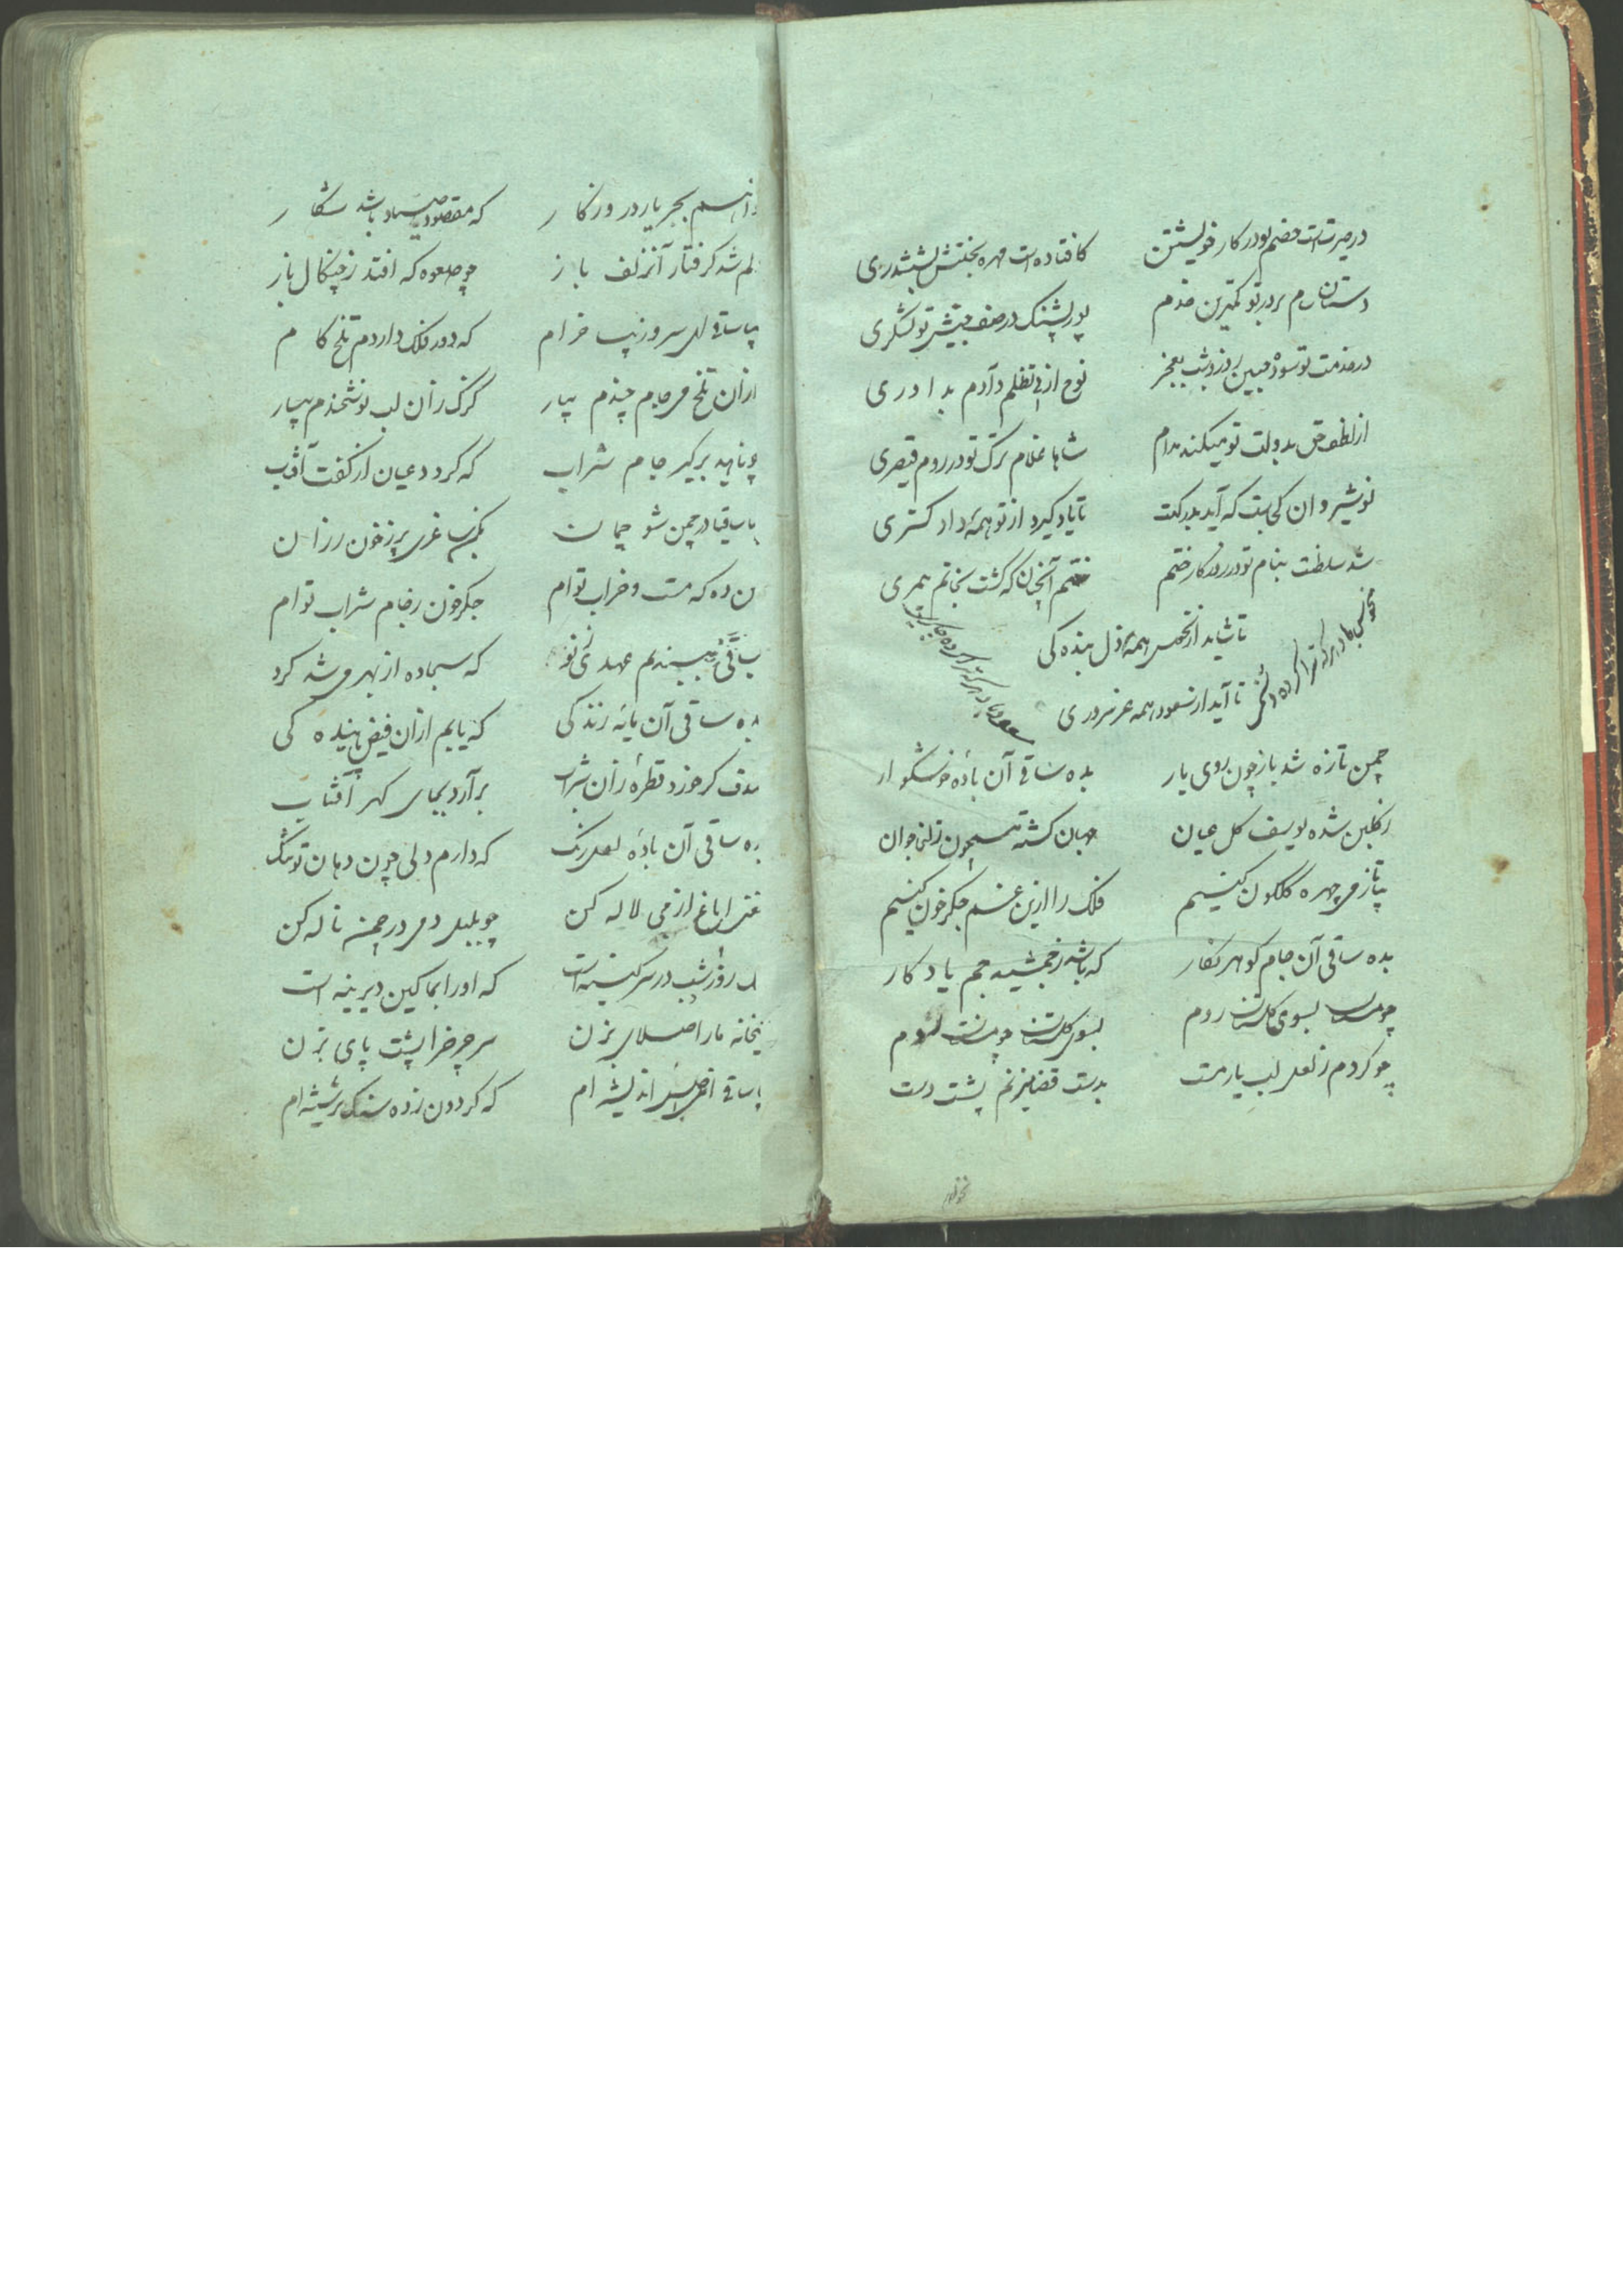 در حیرت است خصم تو در کار خویشتن کافتاده است مهره بختش بششدری
دستان سام بر در تو کمترین خدم پور پشنک در صف جیش تو لشکری
در خدمت تو سوده جبین روز و شب بعجز نوح از پی تظلم و آدم بداوری
از لطف حق بدولت تو میکند مدام شاها غلام ترک تو در روم قیصری
نوشیروان کجاست که آید بدرکهت تا یاد کیرد از تو همه دادکستری
شد سلطنت بنام تو در روزکار ختم ختم آنچنان که کشت بخاتم پیمبری
تا شاید از نحوس همه ذل بنده کی
تا آید از سعود همه عز سروری
منحوس باد هر که ترا کرده
مسعود باد هر که ترا کرده چاکری
چمن تازه شد باز چون روی یار بده ساقی آن باده خوشکوار
ز کلبن شده یوسف کل عیان جهان کشته همچون زلیخا جوان
بیا تا ز می چهره کلکون کنیم فلک را ازین غم جکر خون کنیم
بده ساقی آن جام کوهر نکار که باشد ز جمشید جم یادکار
چو مست بسوی کلستان روم بسوی کلستان چو مستان روم
چو کردم ز لعل لب یار مست بدست قضا میزنم پشت دست
بهجر یار در روزکار که مقصود صیاد باشد شکار
دلم شد کرفتار آن زلف باز چو صعوه که افتد ز چنکال باز
بیا ساقی ای سرو زیبا خرام که دور فلک داردم تلخ کام
از آن تلخ می جام چندم بیار کزک زان لب نوشخندم بیار
چو ناهید برکیر جام شراب که کردد عیان از کفت آفتاب
بیا ساقیا در چمن شو چمان بکن ساغری پر ز خون رزان
بمن ده که مست و خراب توام جکر خون ز جام شراب توام
بیا ساقی ببندیم عهدی ز نو که سجاده از بهر می شد کرو
بده ساقی آن مایه زندکی که یابم از آن فیض پاینده کی
صدف کر خورد قطره زان شراب برآرد بجای کهر آفتاب
بده ساقی آن باده لعل رنک که دارم دلی چون دهان تو تنک
ایاغ از می لاله کن چو بلبل دمی در چمن ناله کن
روز و شب در سر کینه است که او را بما کین دیرینه است
بمیخانه ما را صلایی بزن سر چرخ را پشت پایی بزن
بیا ساقی اندیشه ام که کردون زده سنک بر شیشه ام